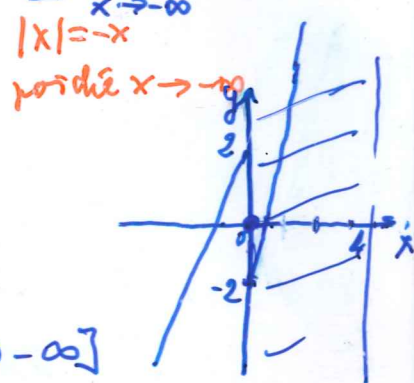 x→-∞
|x|=-x
poiché x→-∞
y
2
0
4
x
-2
-∞]